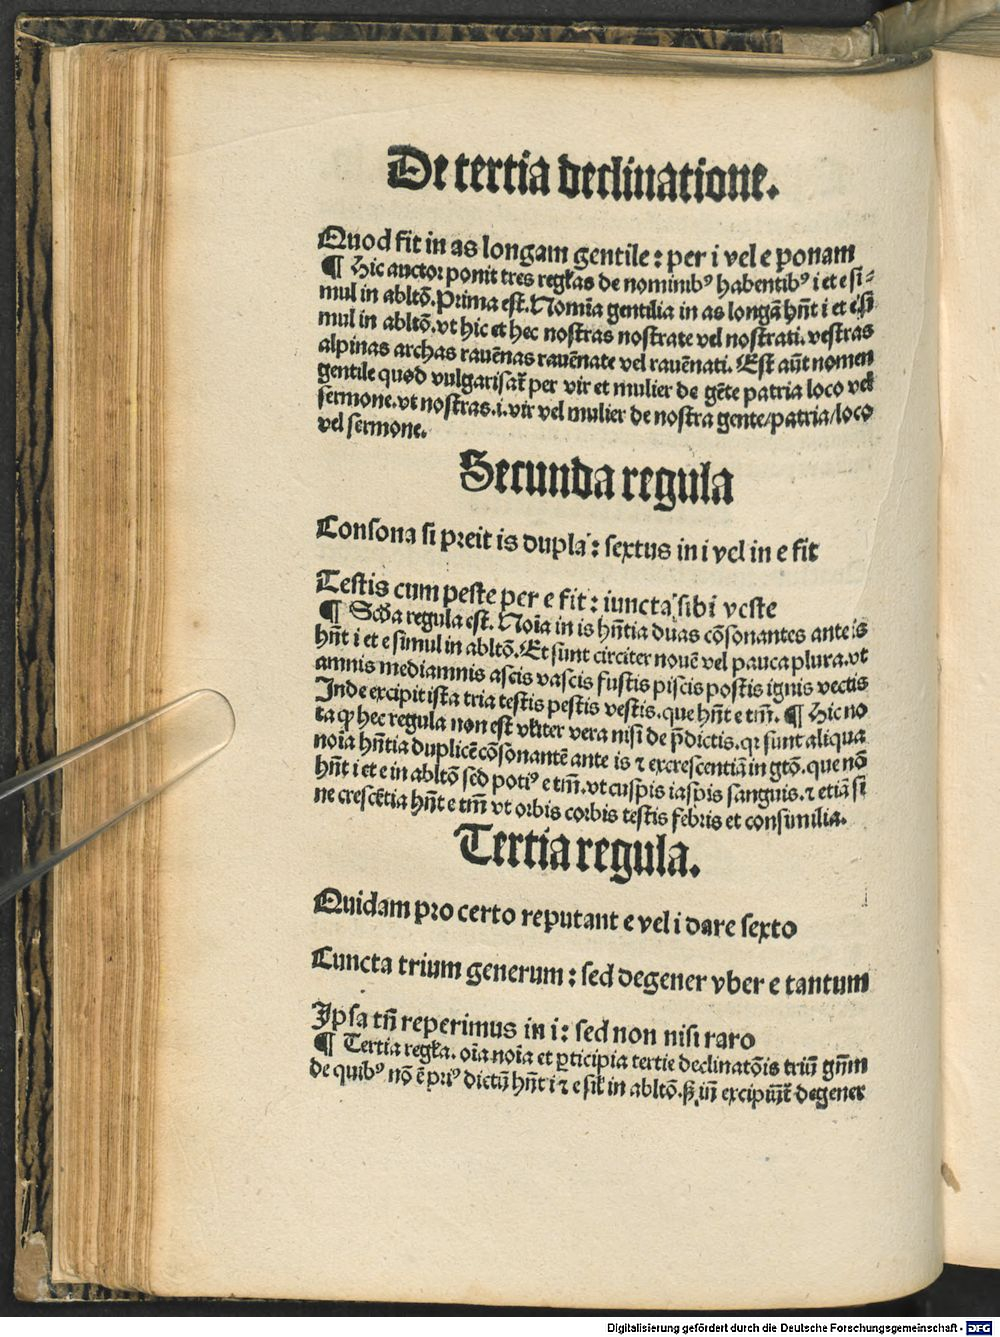 De tertia declinatione.
Quod fit in as longam gentile : per i vel e ponam
¶ Hic auctor ponit tres regłas de nominibꝰ habentibꝰ i et e si⸗
mul in abltō. Prima est. Nomīa gentilia in as longā hn̄t i et e si
mul in abltō. vt hic et hec nostras nostrate vel nostrati. vestras
alpinas archas rauēnas rauēnate vel rauēnati. Est aūt nomen
gentile quod vulgarisat᷑ per vir et mulier de gēte patria loco vel
sermone. vt nostras .i. vir vel mulier de nostra gente/patria/loco
vel sermone.
Secunda regula
Consona si preit is dupla : sextus in i vel in e fit
Testis cum peste per e fit : iuncta sibi veste
¶ Scďa regula est. Noīa in is hn̄tia duas cōsonantes ante is
hn̄t i et e simul in abltō. Et sunt circiter nouē vel pauca plura. vt
amnis mediamnis ascis vascis fustis piscis postis ignis vectis
Inde excipit ista tria testis pestis vestis. que hn̄t e tm̄. ¶ Hic no
ta ꝙ hec regula non est vłiter vera nisi de p̄dictis. qꝛ sunt aliqua
noīa hn̄tia duplicē cōsonantē ante is ⁊ excrescentiā in gtō. que nō
hn̄t i et e in abltō sed potiꝰ e tm̄. vt cuspis iaspis sanguis. ⁊ etiā si
ne crescētia hn̄t e tm̄ vt orbis corbis testis febris et consimilia.
Tertia regula.
Quidam pro certo reputant e vel i dare sexto
Cuncta trium generum : sed degener vber e tantum
Ipsa tn̄ reperimus in i : sed non nisi raro
¶ Tertia regła. oīa noīa et ꝑticipia tertie declinatōis triū gn̄m
de quibꝰ nō ē priꝰ dictū hn̄t i ⁊ e sił in abltō. excipiūt᷑ degener
Digitalisierung gefördert durch die Deutsche Forschungsgemeinschaft - DFG